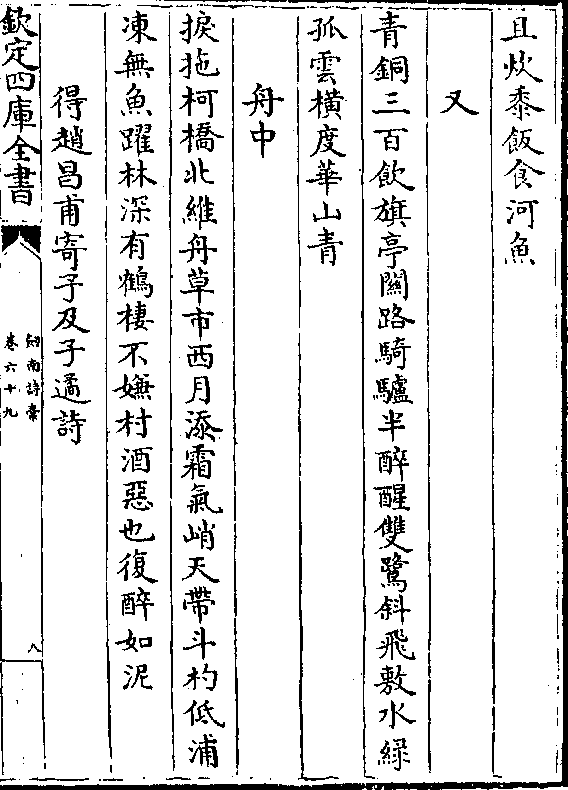 且炊黍飯食河魚
又
青銅三百飲旗亭關路騎驢半醉醒雙鷺斜飛敷水綠
孤雲橫度華山青
舟中
捩拖柯橋北維舟草市西月添霜氣峭天帶斗杓低浦
凍無魚躍林深有鶴棲不嫌村酒惡也復醉如泥
得趙昌甫寄予及子遹詩
欽定四庫全書
劍南詩稾
卷六十九
八